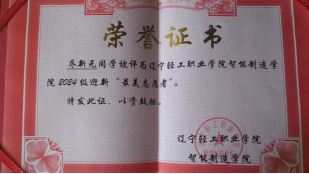 荣誉证书
乔新元同学被评为辽宁轻工职业学院智能制造学
院2024级迎新“最美志愿者”。
特发此证，以资鼓励。
辽宁轻工职业学院
智能制造学院